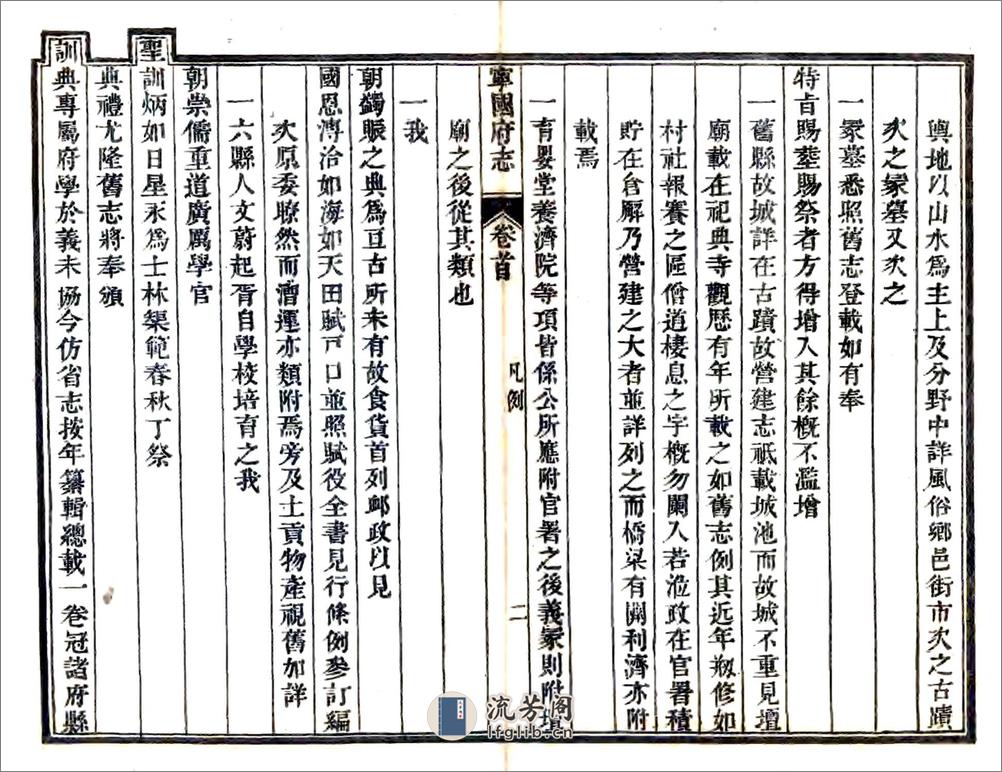 輿地以山水爲主上及分野中詳風俗鄉邑街市次之古蹟
次之冢墓又次之
一冢墓悉照舊志登載如有奉
特旨賜葬賜祭者方得增入其餘槪不濫增
一舊縣故城詳在古蹟故營建志祗載城池而故城不重見壇
廟載在祀典寺觀歷有年所載之如舊志例其近年剏修如
村社報賽之區僧道棲息之宇槪勿闌入若涖政在官署積
貯在倉廨乃營建之大者並詳列之而橋梁有關利濟亦附
載焉
寧國府志
卷首
凡例
二
一育嬰堂養濟院等項皆係公所應附官署之後義冢則附壇
廟之後從其類也
一我
朝蠲賑之典爲亘古所未有故食貨首列䘏政以見
國恩溥洽如海如天田賦戸口並照賦役全書見行條例參訂編
次原委瞭然而漕運亦類附焉旁及土貢物產視舊加詳
一六縣人文蔚起胥自學校培育之我
朝崇儒重道廣厲學官
聖訓炳如日星永爲士林榘範春秋丁祭
典禮尤隆舊志將奉頒
訓典專屬府學於義未協今仿省志按年纂輯總載一卷冠諸府縣
流芳阁
lfglib.cn